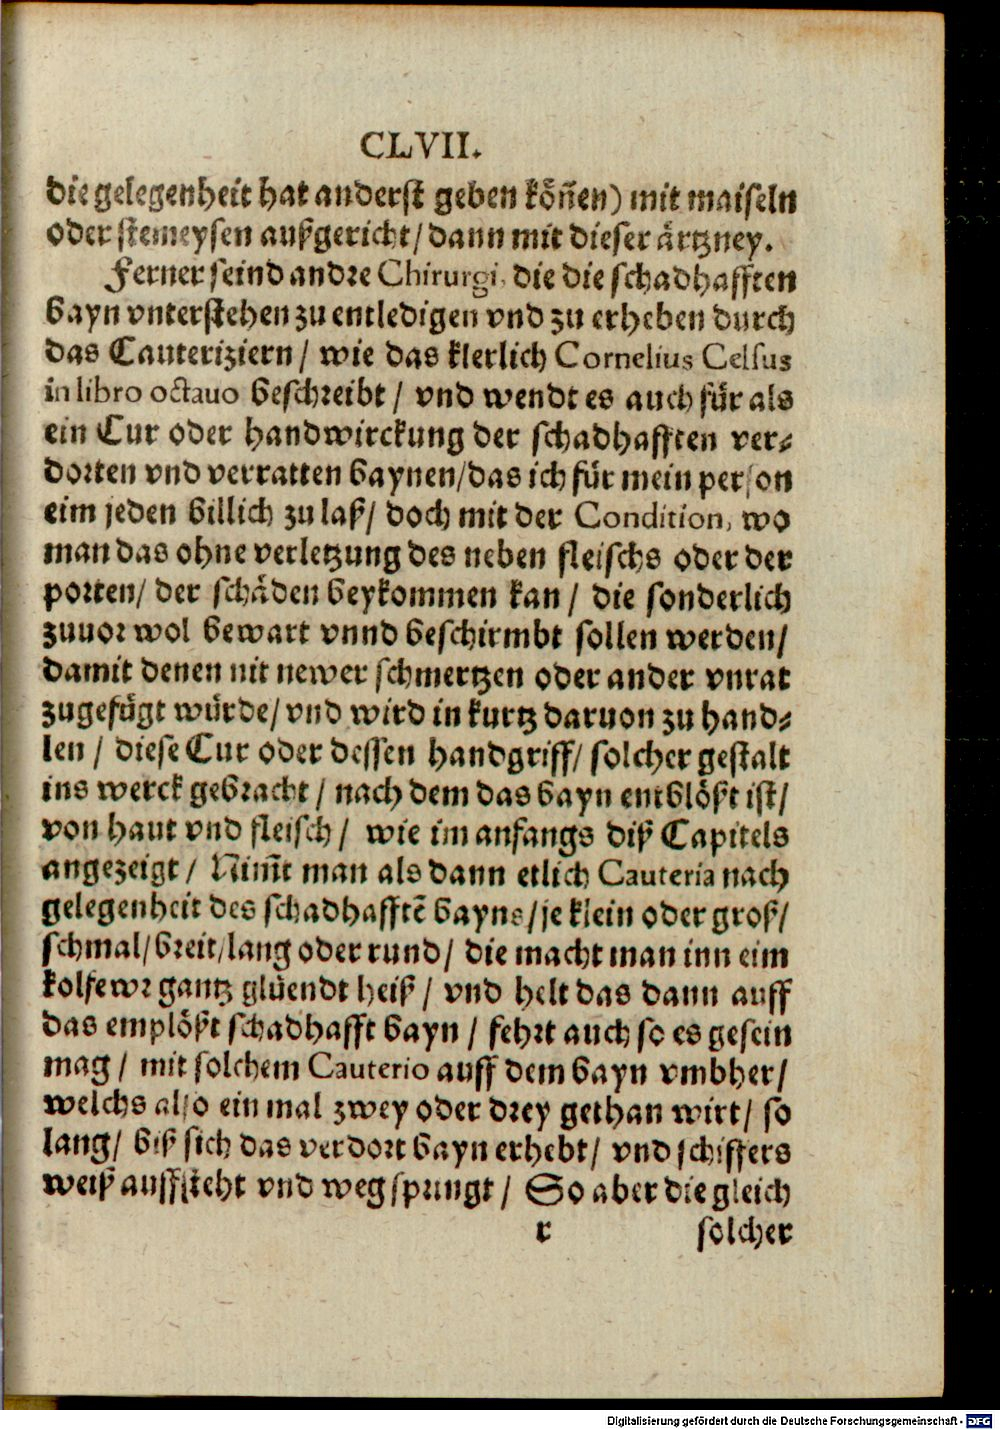 CLVII.
die gelegenheit hat anderst geben köñen) mit maiseln
oder stemeysen außgericht / dann mit dieser ärtzney.
Ferner seind andre Chirurgi, die die schadhafften
bayn vnterstehen zu entledigen vnd zu erheben durch
das Cauteriziern / wie das klerlich Cornelius Celsus
in libro octauo beschreibt / vnd wendt es auch für als
ein Cur oder handwirckung der schadhafften ver⸗
dorten vnd verratten baynen / das ich für mein person
eim jeden billich zu laß / doch mit der Condition, wo
man das ohne verletzung des neben fleischs oder der
porten / der schäden beykommen kan / die sonderlich
zuuor wol bewart vnnd beschirmbt sollen werden /
damit denen nit newer schmertzen oder ander vnrat
zugefügt würde / vnd wird in kurtz daruon zu hand⸗
len / diese Cur oder dessen handgriff / solcher gestalt
ins werck gebracht / nach dem das bayn entblößt ist /
von haut vnd fleisch / wie im anfangs diß Capitels
angezeigt / Nim̃t man als dann etlich Cauteria nach
gelegenheit des schadhafftẽ bayns / je klein oder groß /
schmal / breit / lang oder rund / die macht man inn eim
kolfewr gantz glüendt heiß / vnd helt das dann auff
das emplößt schadhafft bayn / fehrt auch so es gesein
mag / mit solchem Cauterio auff dem bayn vmbher /
welchs also ein mal zwey oder drey gethan wirt / so
lang / biß sich das verdort bayn erhebt / vnd schiffers
weiß auffsteht vnd weg springt / So aber die gleich
r solcher
Digitalisierung gefördert durch die Deutsche Forschungsgemeinschaft - DFG